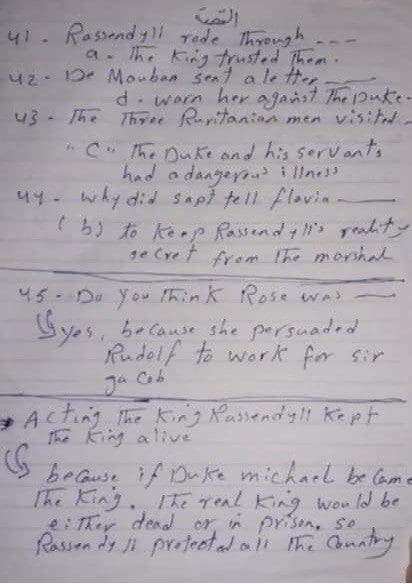 القصة
41 - Rassendyll rode through ----
a - The King trusted them.
42 - De Mauban sent a letter
d - warn her against The Duke.
43 - The Three Ruritanian men visited -
"C" The Duke and his servants
had a dangerous illness
44 - why did sapt tell flavia -
(b) to Keep Rassendyll's reality
secret from The marshal
45 - Do You Think Rose was -
yes, because she persuaded
Rudolf to work for sir
ga cob
* Acting The King Rassendyll Kept
The King alive
because if Duke michael became
The King. The real King would be
either dead or in prison. so
Rassendyll protected all The Country